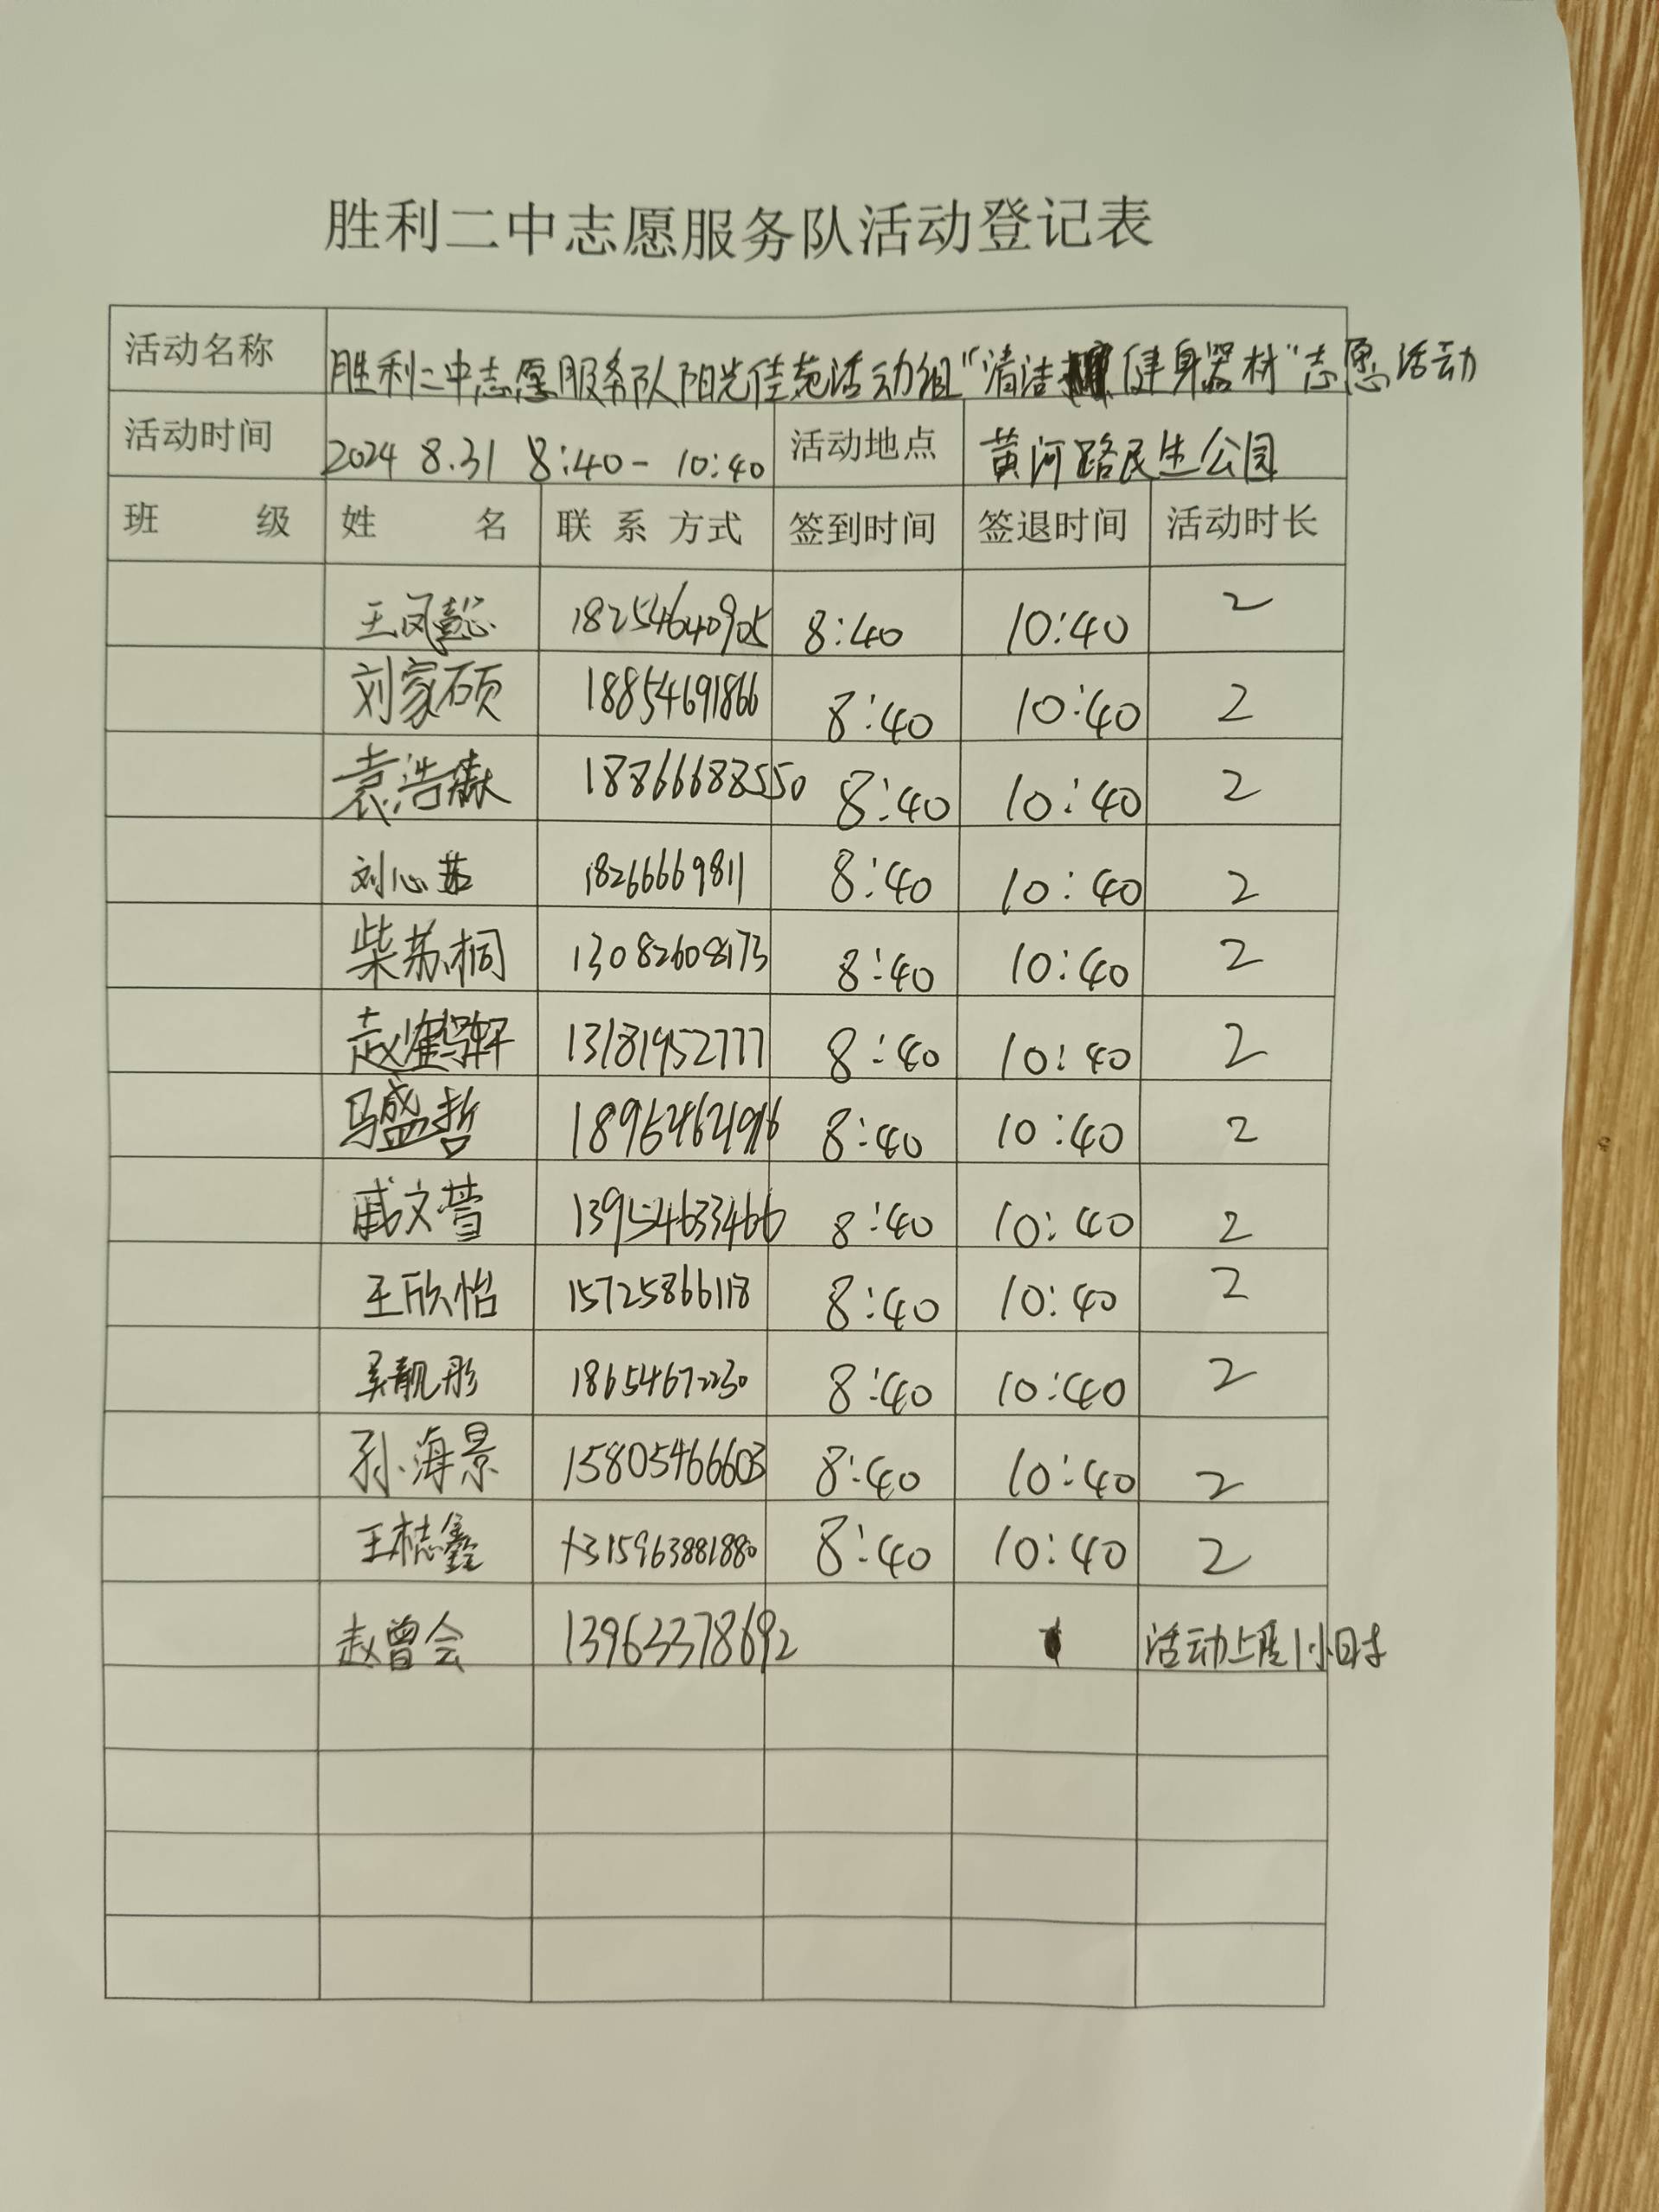 胜利二中志愿服务队活动登记表
活动名称 胜利二中志愿服务队阳光佳苑活动组“清洁健身器材”志愿活动
活动时间 2024 8.31 8:40- 10:40 活动地点 黄河路民生公园
班 级 姓 名 联系方式 签到时间 签退时间 活动时长
王凤懿 18254640905 8:40 10:40 2
刘家硕 18854691866 8:40 10:40 2
袁浩森 18866688550 8:40 10:40 2
刘心茹 18266669811 8:40 10:40 2
柴苏桐 13082608173 8:40 10:40 2
赵鹤轩 13181952777 8:40 10:40 2
马盛哲 8:40 10:40 2
戚文萱 13954633466 8:40 10:40 2
王欣怡 15725866118 8:40 10:40 2
吴靓彤 18654672230 8:40 10:40 2
孙海景 15805466603 8:40 10:40 2
王梽鑫 15963881880 8:40 10:40 2
赵曾会 13963378692 活动上限1小时